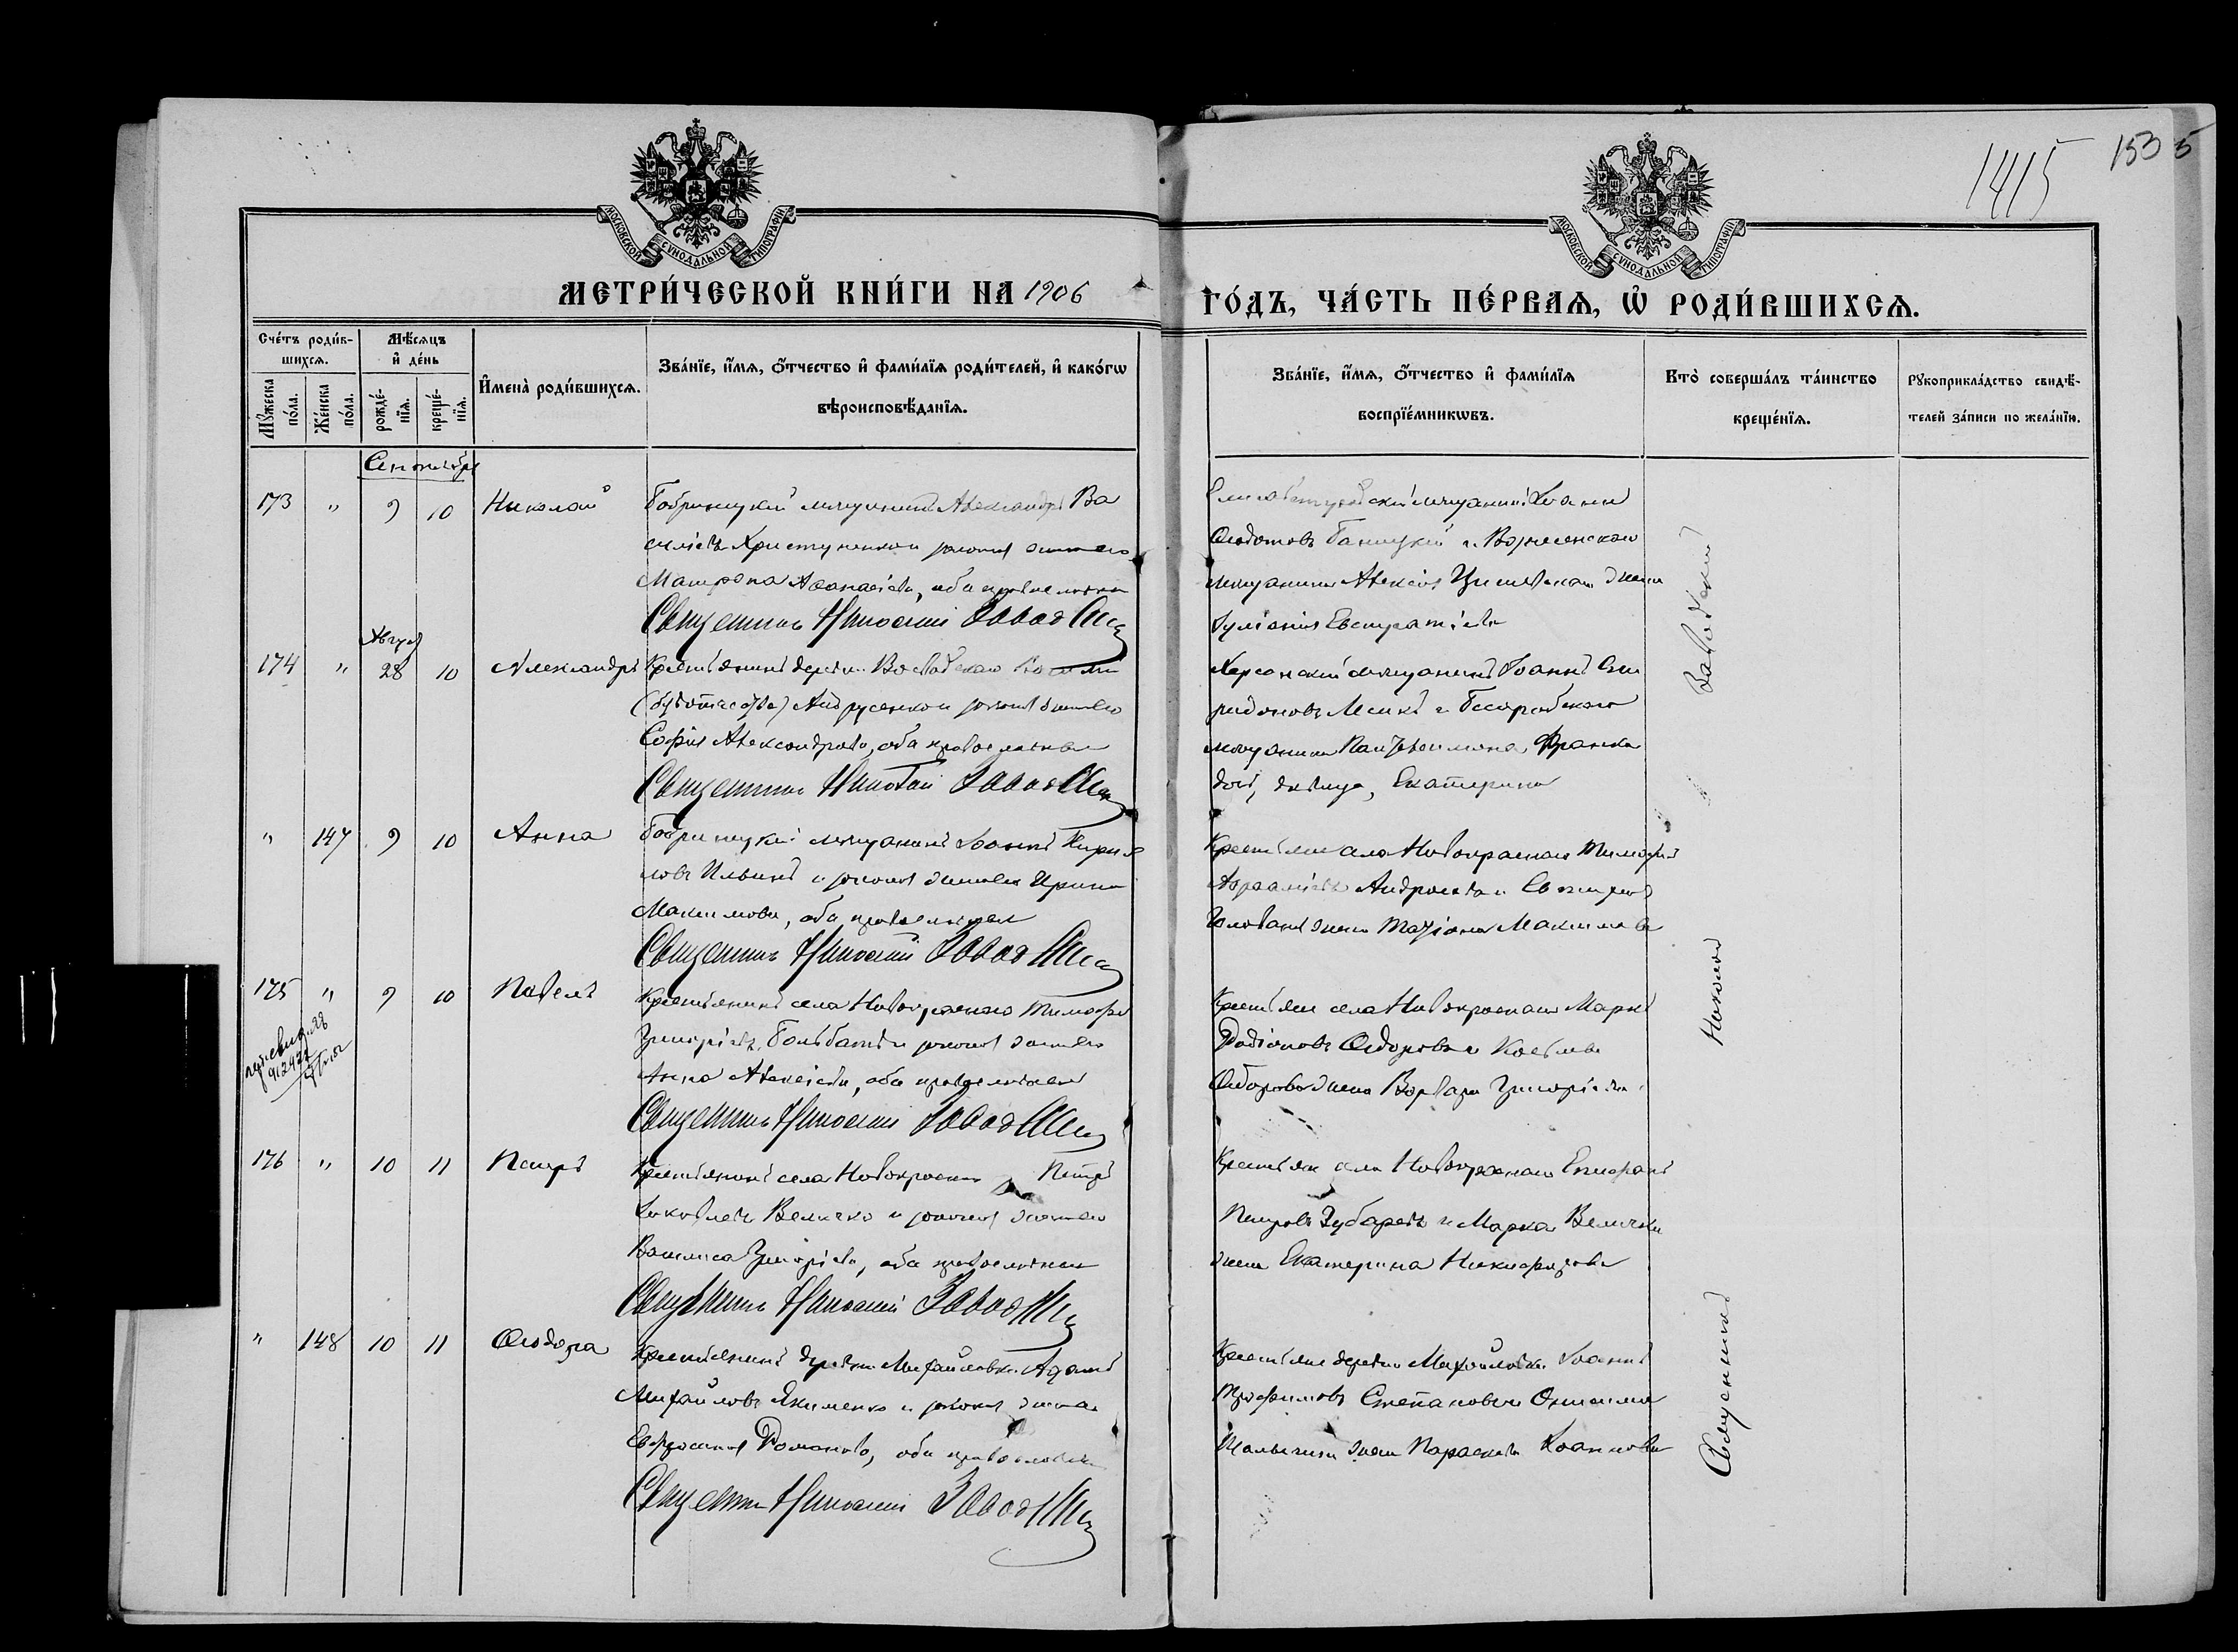 1415 153 5
МОСКОВСКОЙ СУНОДАЛЬНОЙ ТИПОГРАФІИ
МОСКОВСКОЙ СУНОДАЛЬНОЙ ТИПОГРАФІИ
МЕТРИ́ЧЕСКОЙ КНИ́ГИ НА 1906
ГО́ДЪ, ЧА́СТЬ ПЕ́РВАѦ, Ѡ҆ РОДИ́ВШИХСѦ.
Сче́тъ роди́в-
шихсѧ.
Мѣ́сѧцъ
и҆ де́нь
Мꙋ́жеска по́ла.
Же́нска по́ла.
рожде́-нїѧ.
креще́-нїѧ.
И҆мена̀ роди́вшихсѧ.
Зва́нїе, и҆́мѧ, ѻ҆́тчество и҆ фами́лїѧ роди́телей, и҆ како́гѡ
вѣроисповѣ́данїѧ.
Зва́нїе, и҆́мѧ, ѻ҆́тчество и҆ фами́лїѧ
воспрїе́мникѡвъ.
Кто̀ соверша́лъ та́инство
креще́нїѧ.
Рꙋкоприкла́дство свидѣ́-
телей за́писи по жела́нїю.
Сентябрь
173 " 9 10 Николай
Бобринецкій мѣщанинъ Александръ Ва
сильевъ Христуненко и законная жена его
Матрона Аѳанасіева, оба православные
Священникъ Николай Заводскій
Елисаветградскій мѣщанинъ Іоаннъ
Ѳеодотовъ и Вознесенскаго
мѣщанина Алексѣя жена
Іуліанія Евстратіева
Август
174 " 28 10 Александръ
Крестьянинъ деревни
Андрусенко и законная жена его
Софія Александрова, оба православные
Священникъ Николай Заводскій
Херсонскій мѣщанинъ Іоаннъ Спи
ридоновъ и
мѣщанина Пантелеимона Франко
дочь, дѣвица, Екатерина
" 147 9 10 Анна
Бобринецкій мѣщанинъ Іоаннъ Кирил
ловъ Ильинъ и законная жена его Ирина
Максимова, оба православные
Священникъ Николай Заводскій
Крестьяне села Новокраснаго Тимофей
Авраміевъ
жена Татіана Максимова
175 " 9 10 Павелъ
Крестьянинъ села Новокраснаго Тимофей
Григоріевъ и законная жена его
Анна Алексіева, оба православные
Священникъ Николай Заводскій
Крестьяне села Новокраснаго Маркъ
Родіоновъ Ѳедоровъ и Космы
Ѳедорова жена Варвара Григоріева
176 " 10 11 Петръ
Крестьянинъ села Новокраснаго Петръ
Іаковлевъ Величко и законная жена его
Василиса Григоріева, оба православные
Священникъ Николай Заводскій
Крестьяне села Новокраснаго Епифанъ
Петровъ Зубаревъ и Марка Величко
жена Екатерина Никифорова
" 148 10 11 Ѳеодора
Крестьянинъ деревни Михайловки Адамъ
Михайловъ Якименко и законная жена его
Евфросинія Романова, оба православные
Священникъ Николай Заводскій
Крестьяне деревни Михайловки Іоаннъ
Трофимовъ Степановъ и Онисима
жена Параскева Іоаннова
Священникъ Николай Заводскій